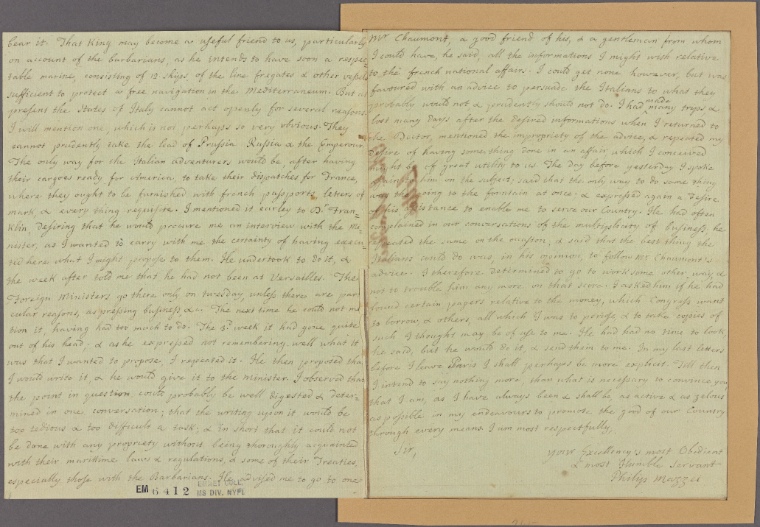 bear it. That King may become a useful friend to us, particularly
on account of the barbarians, as he intends to have soon a respec-
table marine, consisting of 12 ships of the line frigates & other vessels
sufficient to protect a free navigation in the Mediterranean. But at
present the States of Italy cannot act openly for several reasons
I will mention one, which is not perhaps so very obvious. They
cannot prudently take the lead of Prussia Russia & the Emperour.
The only way for the Italian adventurers would be, after having
their cargoes ready for America, to take their dispatches for France,
where they ought to be furnished with french passports letters of
mark, & every thing requisite. I mentioned it early to Dr. Fran-
klin, desiring that he would procure me an interview with the Mi-
nister, as I wanted to carry with me the certainty of having
here what I might propose to them. He undertook to do it, &
the week after told me that he had not been at Versailles. The
Foreign Ministers go there only on tuesday, unless there are par-
cular reasons, as pressing business &c. The next time he could not
tion it, having had too much to do. The 3d week it had gone quite
out of his head; & as he expressed not remembering well what it
was that I wanted to propose, I repeated it. He then proposed that
I would write it, & he would give it to the Minister. I observed that
the point in question could probably be well digested & deter-
mined in one conversation; that the writing upon it would be
too tedious & too difficult a task; & in short that it could not
be done with any propriety without being thoroughly acquainted
with their maritime laws & regulations, & some of their Treaties,
especially those with the Barbarians. He advised me to go to one
EM 6412
EMMET COLL.
MS DIV. NYPL
Mr. Chaumont, a good friend of his, & a gentleman from whom
I could have, he said, all the informations I might wish relative
to the french national affairs. I could get none however, but was
favoured with an advice to persuade the Italians to what they
probably would not & prudently should not do. I had made many trips &
lost many days after the desired informations when I returned to
the Doctor, mentioned the impropriety of the advice, & repeated my
desire of having something done in an affair which I conceived
might be of great utility to us. The day before yesterday I spoke
again to him on the subject; said that the only way to do some thing
was going to the fountain at once; & expressed again a desire
of his assistance to enable me to serve our Country. He had often
complained in our conversations of the multiplicity of business, he
repeated the same on the occasion, & said that the best thing the
Italians could do was, in his opinion, to follow Mr Chaumont's
advice. I therefore determined to go to work some other way, &
not to trouble him any more on that score. I asked him if he had
found certain papers relative to the money, which Congress want
to borrow, & others, all which I was to peruse & to take copies of
such I thought may be of use to me. He had had no time to look
he said, but he would do it, & send them to me. In my last letters
before I leave Paris I shall perhaps be more explicit. Till then
I intend to say nothing more, than what is necessary to convince you
that I am, as I have always been & shall be, as active & as zealous
as possible in my endeavours to promote the good of our Country
through every means. I am most respectfully,
Sir,
your Excellency's most Obedient
& most Humble Servant
Philip Mazzei